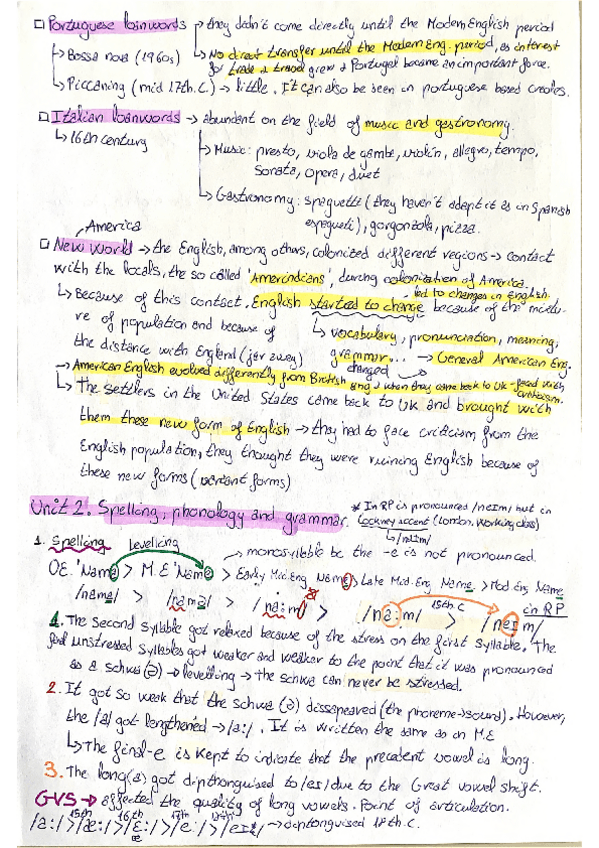 □ Portuguese loanwords → they didn't come directly until the Modern English period
↳ Bossa nova (1960s) ↳ No direct transfer until the Modern Eng. period, as interest
for trade & travel grew & Portugal became an important force.
↳ Piccaning (mid 17th.C.) → little. It can also be seen in portuguese based creoles.
□ Italian loanwords → abundant on the field of music and gastronomy.
↳ 16th century
↳ Music: presto, viola de gamba, violin, allegro, tempo,
Sonata, opera, duet
↳ Gastronomy: spaguetti (they haven't adapt it as in Spanish
espagueti), gorgonzola, pizza.
America
□ New World → the English, among others, colonized different regions → contact
with the locals, the so called 'Amerindians', during colonization of America.
led to changes in English.
↳ Because of this contact, English started to change because of the mixtu-
re of population and because of ↳ vocabulary, pronunciation, meaning,
the distance with England (far away) grammar... → General American Eng.
changed
→ American English evolved differently from British Eng & when they came back to UK - faced with
criticism.
↳ The settlers in the United States came back to UK and brought with
them these new form of English → they had to face criticism from the
English population, they thought they were ruining English because of
these new forms (variant forms)
Unit 2. Spelling, phonology and grammar.
* In RP is pronounced /neɪm/ but in
Cockney accent (London, working class)
↳ /naɪm/
1. Spelling Levelling monosyllable bc the -e is not pronounced.
OE. 'Nama > M.E 'Name > Early Mod.Eng Name > Late Mod.Eng Name > Mod Eng Name
in RP
/nama/ > /namə/ > /na:m/ > /na:m/ 15th C > /neɪm/
1. The second syllable got relaxed because of the stress on the first syllable. The
final unstressed syllables got weaker and weaker to the point that it was pronounced
as a schwa (ə) → levelling → the schwa can never be stressed.
2. It got so weak that the schwa (ə) dissapeared (the phoneme → sound). However,
the /a/ got lengthened → /a:/. It is written the same as in M.E
↳ The final -e is kept to indicate that the precedent vowel is long.
3. The long (a) got dipthonguised to /eɪ/ due to the Great vowel shift.
GVS → affected the quality of long vowels. Point of articulation.
/a:/ 15th > /æ:/ 16th > /ɛ:/ 17th > /e:/ > /eɪ/ → diptonguised 18th c.
æ